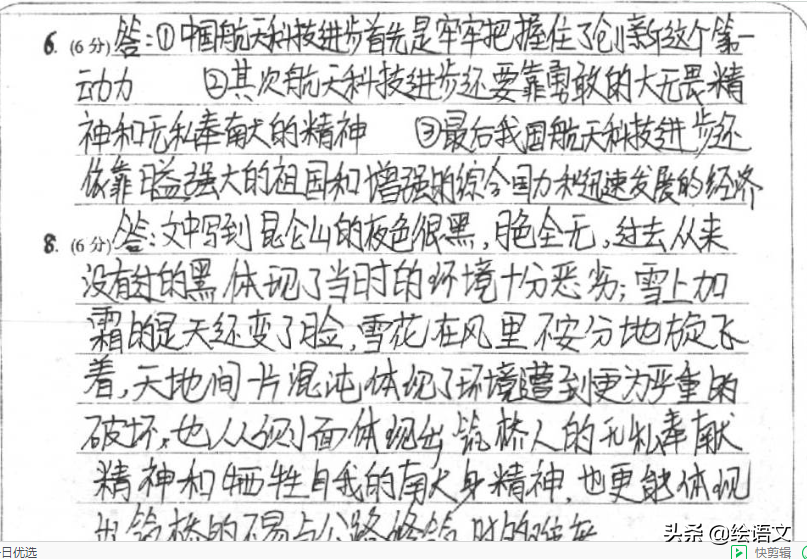 6. (6分)答:①中国航天科技进步首先是牢牢把握住了创新这个第一
动力 ②其次航天科技进步还要靠勇敢的大无畏精
神和无私奉献的精神 ③最后我国航天科技进步还
依靠日益强大的祖国和增强的综合国力和迅速发展的经济
8. (6分)答:文中写到昆仑山的夜色很黑,月色全无,过去从来
没有过的黑,体现了当时的环境十分恶劣;雪上加
霜的是天还变了脸,雪花在风里不安分地旋飞
着,天地间一片混沌,体现了环境遭到更为严重的
破坏,也从侧面体现出筑桥人的无私奉献
精神和牺牲自我的献身精神,也更能体现
出筑桥的不易与公路修筑时的
头条@绘语文
日优选
快剪辑